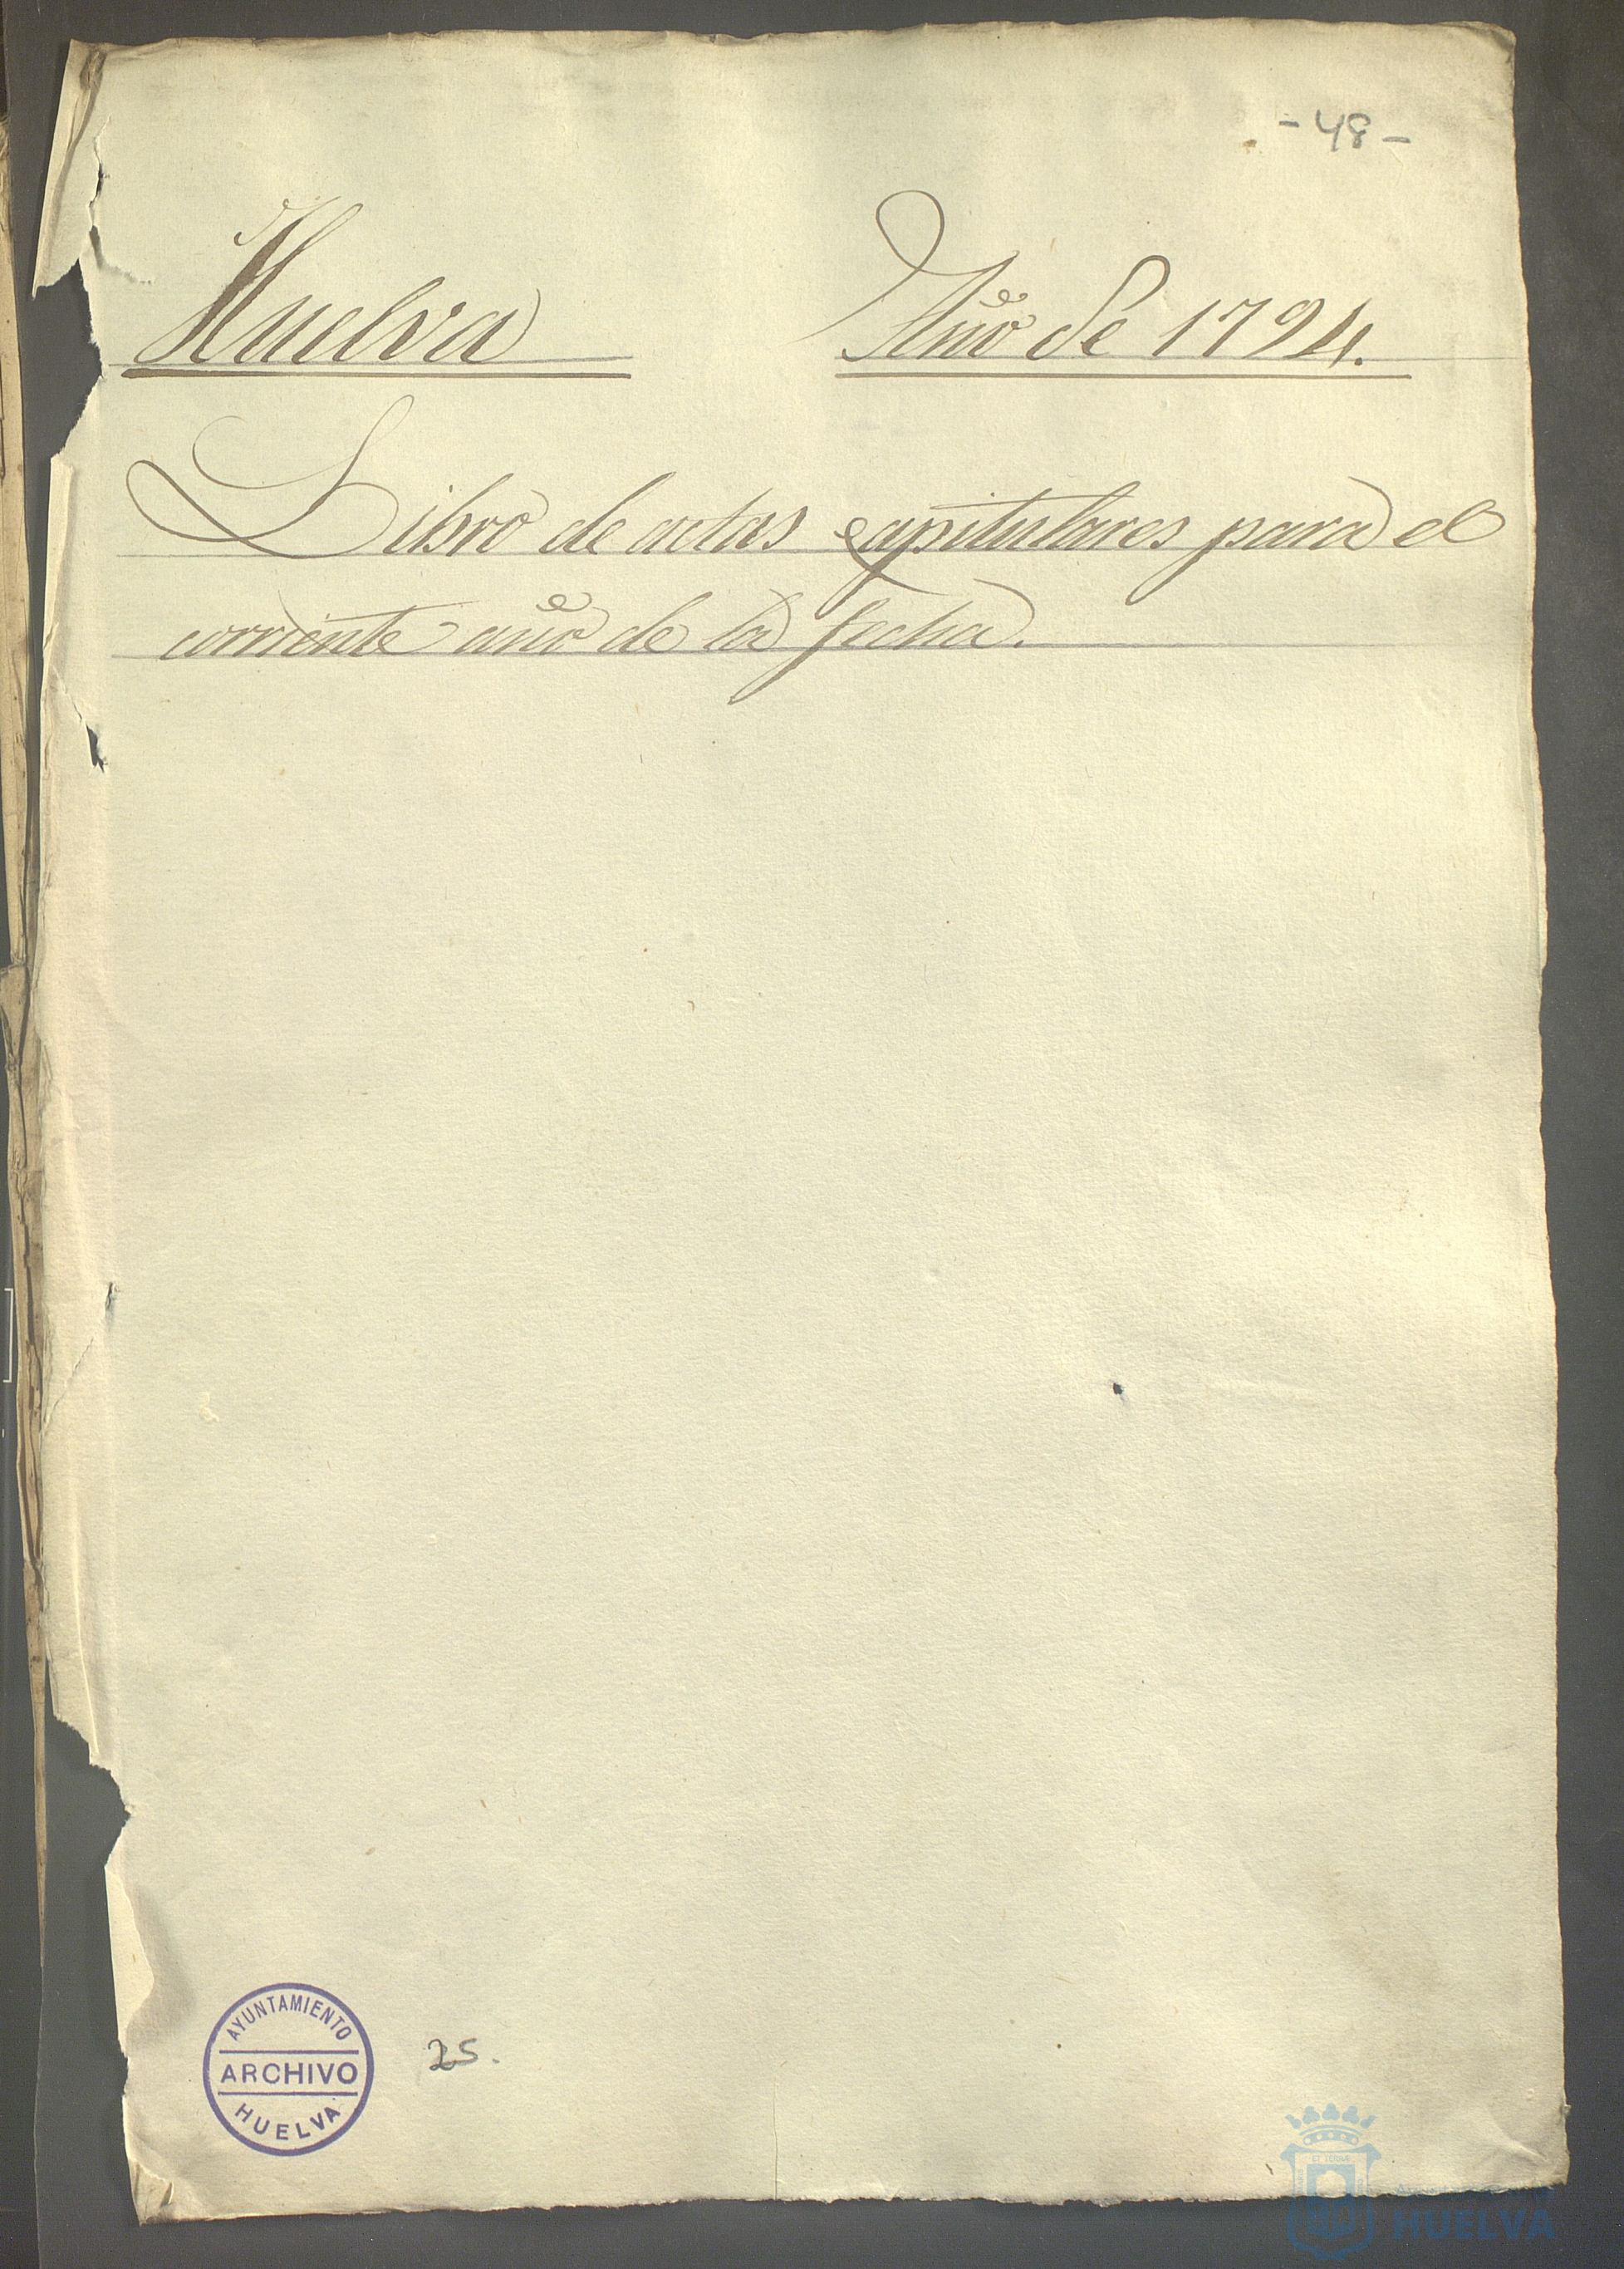 - 48 -
Huelva Año de 1794.
Libro de actas capitulares para el
corriente año de la fecha.
AYUNTAMIENTO
ARCHIVO
HUELVA
25.
HUELVA